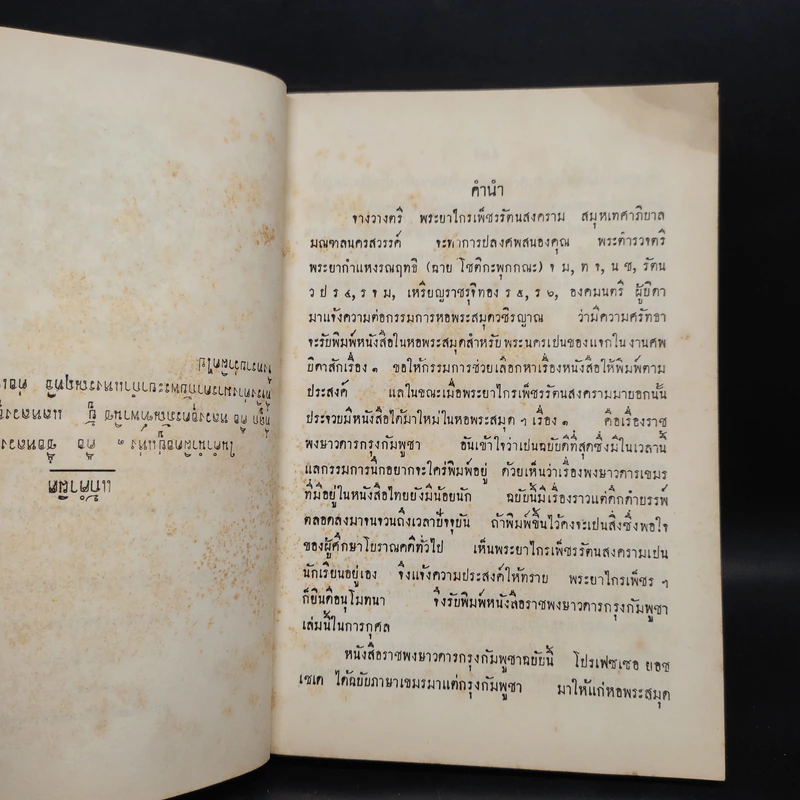 คำนำ
จางวางตรี พระยาไกรเพ็ชรรัตนสงคราม สมุหเทศาภิบาล
มณฑลนครสวรรค์ จะทำการปลงศพสนองคุณ พระตำรวจตรี
พระยากำแหงรณฤทธิ (ฉาย โชติกะพุกกณะ) จ ม, ท จ, น ช, รัตน
ว ป ร ๔, ร จ ม, เหรียญราชรุจิทอง ร ๕, ร ๖, องคมนตรี ผู้บิดา
มาแจ้งความต่อกรรมการหอพระสมุดวชิรญาณ ว่ามีความศรัทธา
จะรับพิมพ์หนังสือในหอพระสมุดสำหรับพระนครเปนของแจกในงานศพ
บิดาสักเรื่อง ๑ ขอให้กรรมการช่วยเลือกหาเรื่องหนังสือให้พิมพ์ตาม
ประสงค์ แลในขณะเมื่อพระยาไกรเพ็ชรรัตนสงครามมาบอกนั้น
ประจวบมีหนังสือได้มาใหม่ในหอพระสมุด ฯ เรื่อง ๑ คือเรื่องราช
พงษาวดารกรุงกัมพูชา อันเข้าใจว่าเปนฉบับดีที่สุดซึ่งมีในเวลานี้
แลกรรมการนึกอยากจะใคร่พิมพ์อยู่ ด้วยเห็นว่าเรื่องพงษาวดารเขมร
ที่มีอยู่ในหนังสือไทยยังมีน้อยนัก ฉบับนี้มีเรื่องราวแต่ดึกดำบรรพ์
ตลอดลงมาจนจวนถึงเวลาปัจจุบัน ถ้าพิมพ์ขึ้นไว้คงจะเปนสิ่งซึ่งพอใจ
ของผู้ศึกษาโบราณคดีทั่วไป เห็นพระยาไกรเพ็ชรรัตนสงครามเปน
นักเรียนอยู่เอง จึงแจ้งความประสงค์ให้ทราบ พระยาไกรเพ็ชร ฯ
ก็ยินดีอนุโมทนา จึงรับพิมพ์หนังสือราชพงษาวดารกรุงกัมพูชา
เล่มนี้ในการกุศล
หนังสือราชพงษาวดารกรุงกัมพูชาฉบับนี้ โปรเฟซเซอ ยอช
เซเด ได้ฉบับภาษาเขมรมาแต่กรุงกัมพูชา มาให้แก่หอพระสมุด
แก้คำผิด